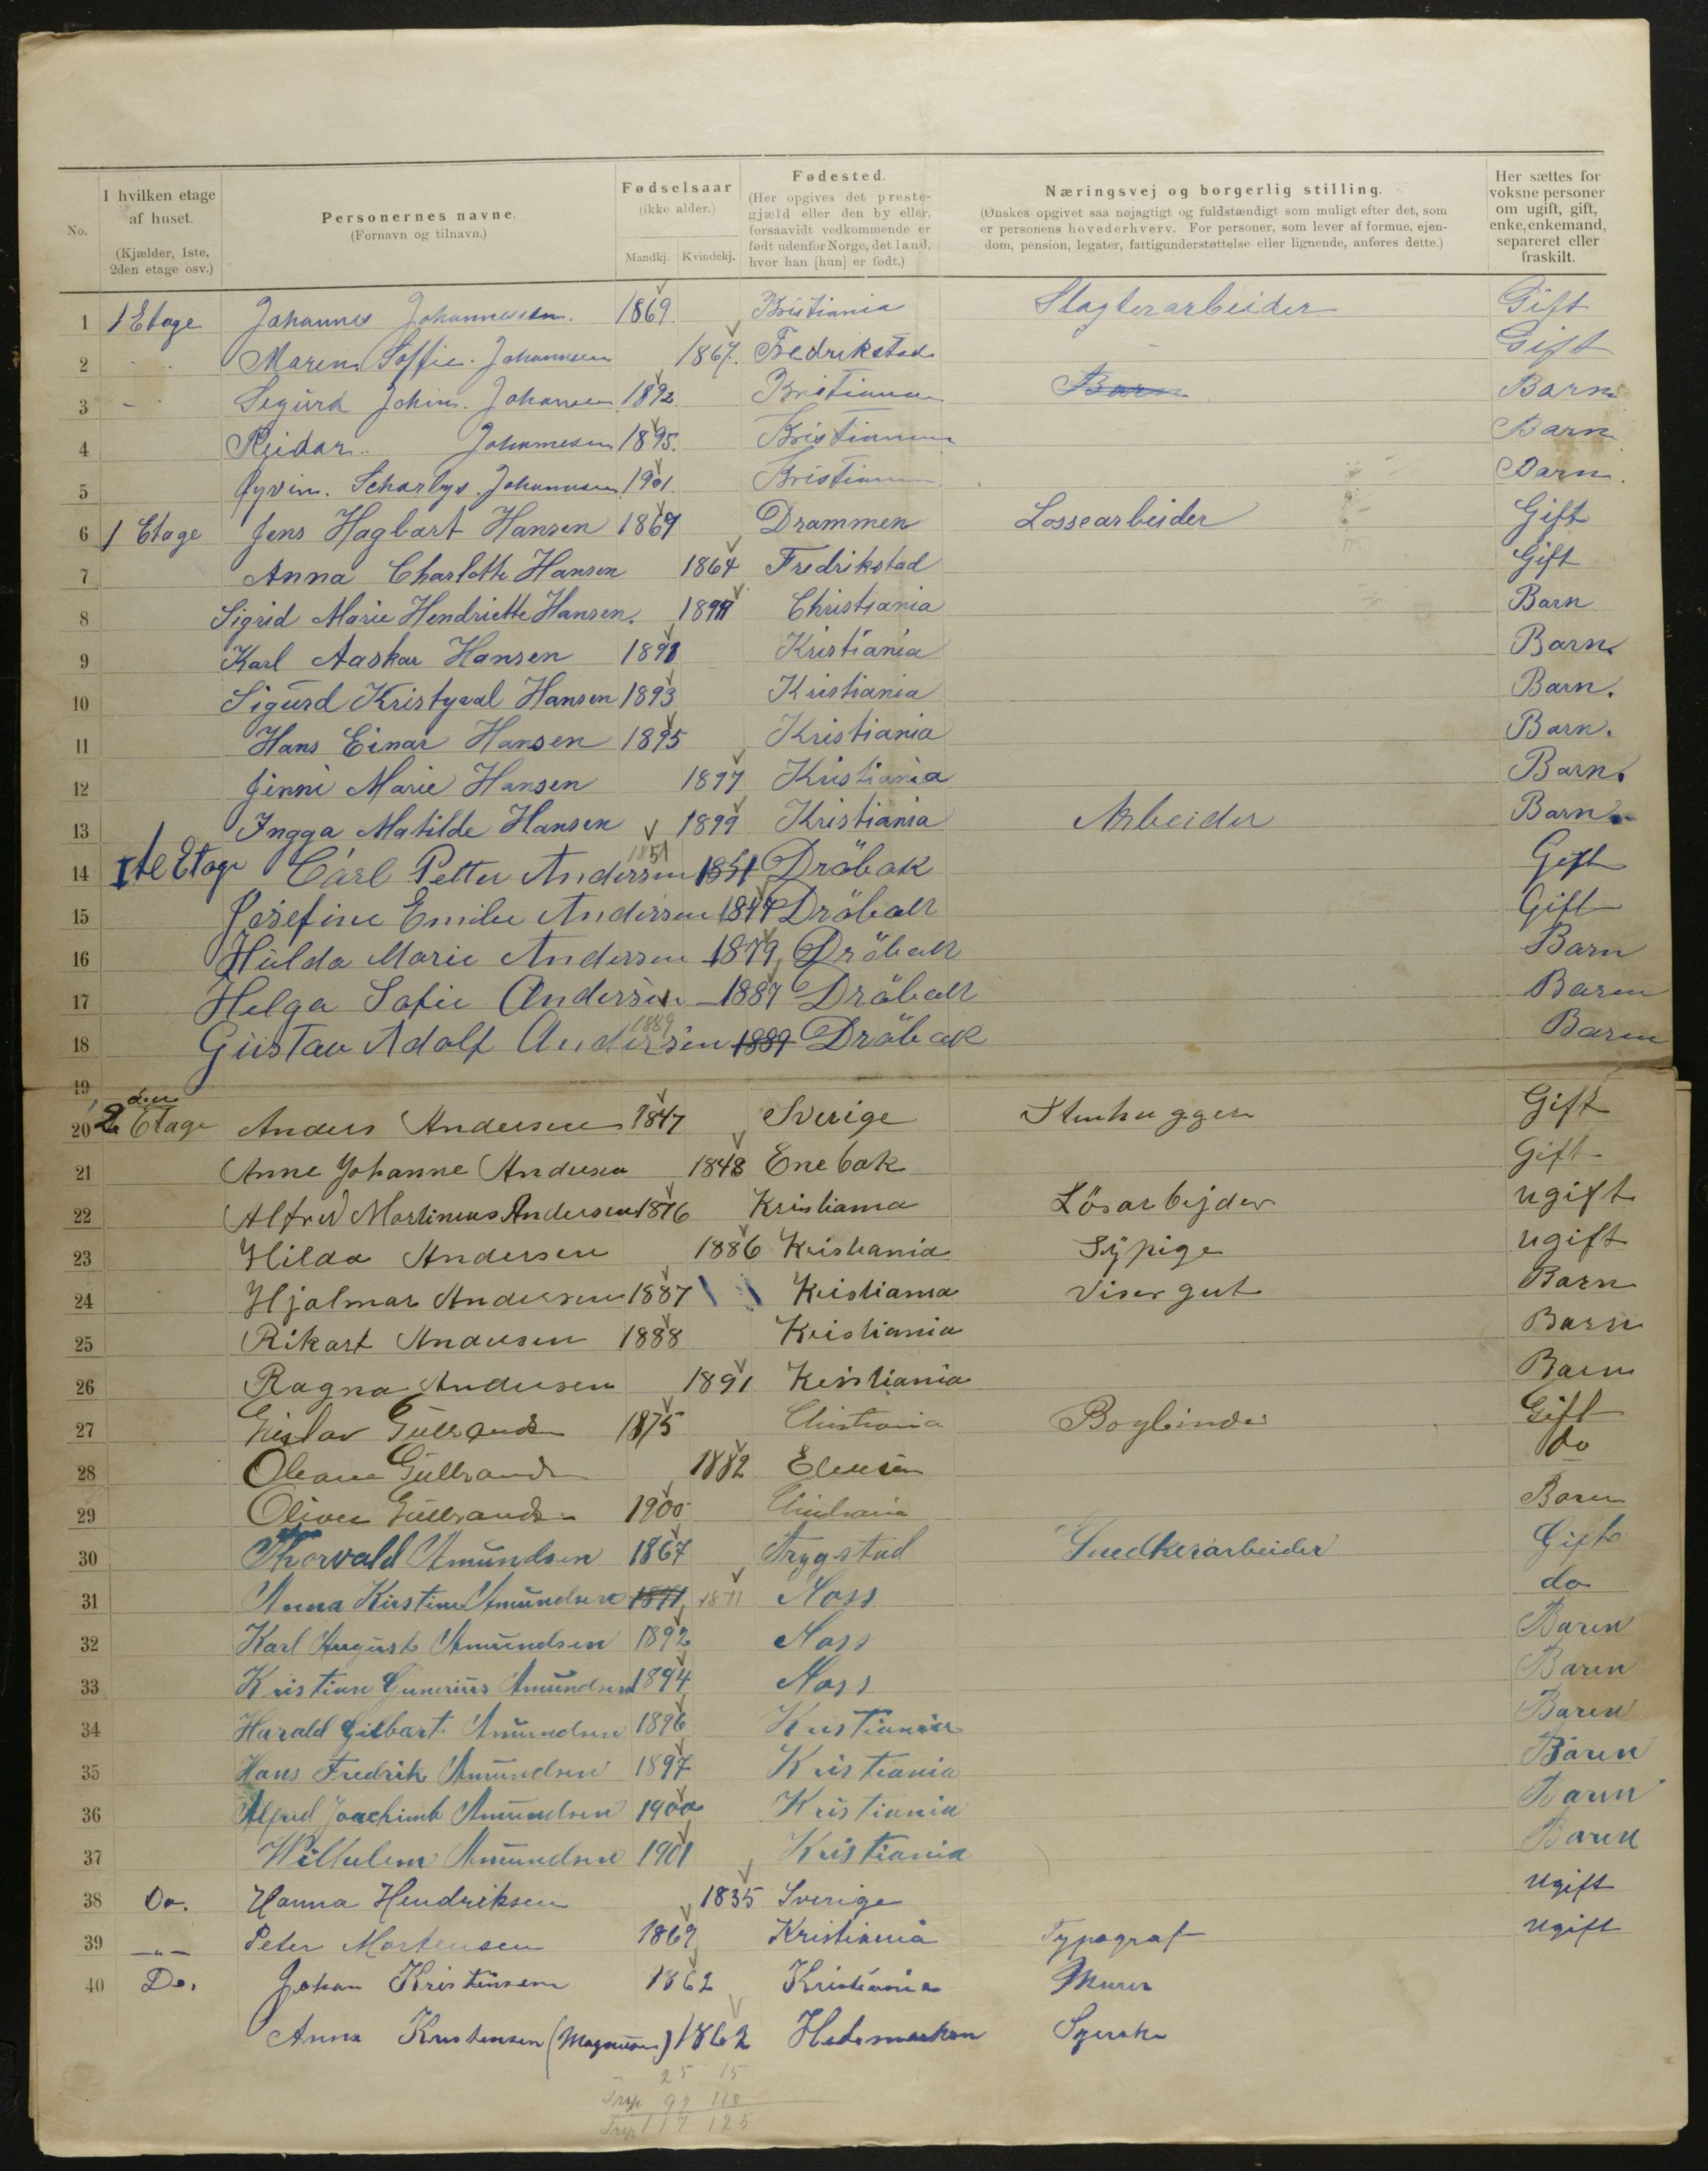 No.
I hvilken etage af huset. (Kjælder, 1ste, 2den etage osv.)
Personernes navne. (Fornavn og tilnavn.)
Fødselsaar (ikke alder.) Mandkj. Kvindekj.
Fødested. (Her opgives det prestegjæld eller den by eller, forsaavidt vedkommende er født udenfor Norge, det land, hvor han [hun] er født.)
Næringsvej og borgerlig stilling. (Ønskes opgivet saa nøjagtigt og fuldstændigt som muligt efter det, som er personens hovederhverv. For personer, som lever af formue, ejendom, pension, legater, fattigunderstøttelse eller lignende, anføres dette.)
Her sættes for voksne personer om ugift, gift, enke, enkemand, separeret eller fraskilt.
1 1 Etage Johannes Johannessen. 1869 Kristiania Slagterarbeider Gift
2 Maren Soffie Johannsen 1867. Fredrikstad Gift
3 Sigurd Johannsen 1892 Kristiania Barn Barn
4 Reidar Johannesen 1895. Kristiania Barn
5 Øyvin. Johannsen 1901 Kristiania Barn.
6 1 Etage Jens Hagbart Hansen Drammen Lossearbeider Gift
7 Anna Charlotte Hansen 1864 Fredrikstad Gift
8 Sigrid Marie Hendriette Hansen. Christiania Barn
9 Karl Aaskar Hansen Kristiania Barn.
10 Sigurd Kristyval Hansen 1893 Kristiania Barn.
11 Hans Einar Hansen 1895 Kristiania Barn.
12 Jinni Marie Hansen 1897 Kristiania Barn.
13 Ingga Matilde Hansen 1899 Kristiania Arbeider Barn.
14 1te Etage Carl Petter Andersen 1851 1851 Dröbak Gift
15 Josefine Emilie Andersen 1847 Dröbak Gift
16 Hulda Marie Andersen 1879 Dröbak Barn
17 Helga Sofie Andersen 1887 Dröbak Baren
18 Gustav Adolf Andersen 1889 1889 Dröbak Baren
19
20 2den Etage Anders Andersen 1847 Sverige Stenhugger Gift
21 Anne Johanne Andersen 1848 Enebak Gift
22 Alfred Martinius Andersen 1876 Kristiania Lösarbejder ugift
23 Hilda Andersen 1886 Kristiania Sÿpige ugift
24 Hjalmar Andersen 1887 Kristiania Visergut Barn
25 Rikart Andersen 1888 Kristiania Barn
26 Ragna Andersen 1891 Kristiania Barn
27 Gullrands 1875 Christiania Bogbinder Gift
28 Gullrands 1882 do
29 Gullrands 1900 Christiania Baren
30 Thorvald Amundsen 1867 Trygstad Snedkerarbeider Gift
31 Anna Kirstine Amundsen 1871 1871 Moss do
32 Karl August Amundsen 1892 Moss Baren
33 Kristian Gunerius Amundsen 1894 Moss Baren
34 Harald Gilbart Amundsen 1896 Kristiania Baren
35 Hans Fredrik Amundsen 1897 Kristiania Baren
36 Alfred Joachimb Amundsen 1900 Kristiania Baren
37 Wilhelm Amundsen 1901 Kristiania Baren
38 Do. Hanna Hendriksen 1835 Sverige ugift
39 — „ — Peter Mortensen 1869 Kristiania Typograf ugift
40 Do. Johan Kristensen 1862 Kristiania Murer
Anna Kristensen (Magnusen) 1862 Hedemarken
25 15
92 110
117 125